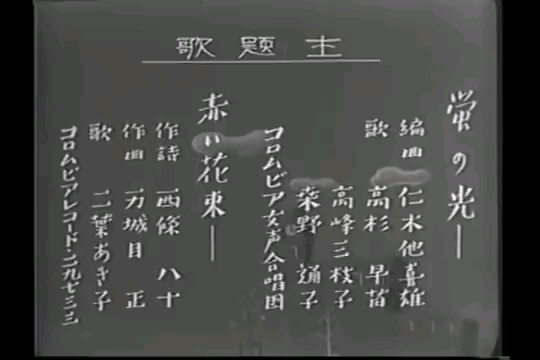 主題歌
螢の光―
編曲 仁木他喜雄
歌 高杉早苗
高峰三枝子
桒野通子
コロムビア女声合唱団
赤い花束―
作詩 西條八十
作曲 万城目正
歌 二葉あき子
コロムビアレコード・二九七三三